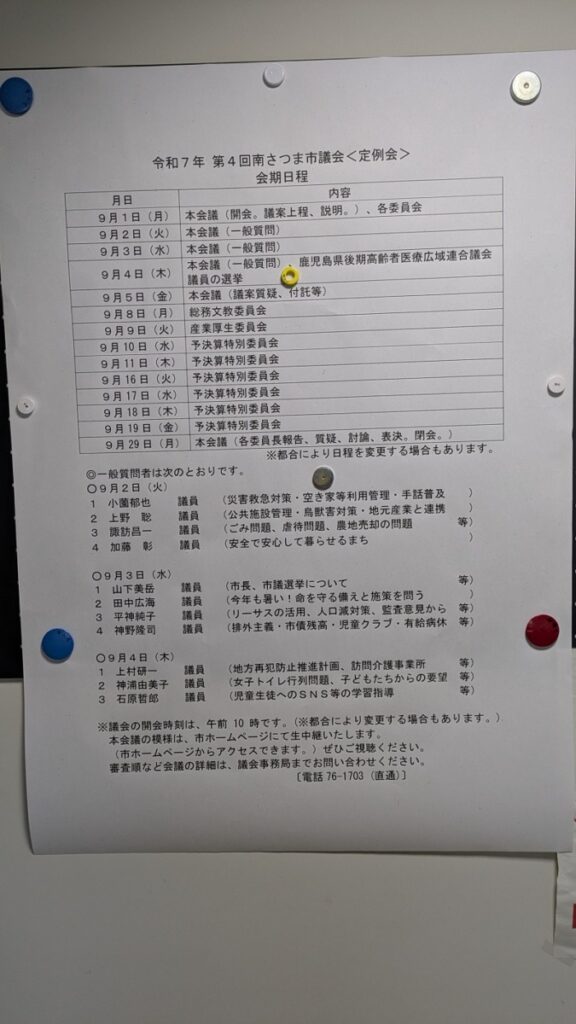 令和７年 第４回南さつま市議会＜定例会＞
会期日程
月日 内容
９月１日（月） 本会議（開会。議案上程、説明。）、各委員会
９月２日（火） 本会議（一般質問）
９月３日（水） 本会議（一般質問）
９月４日（木） 本会議（一般質問）、鹿児島県後期高齢者医療広域連合議会
議員の選挙
９月５日（金） 本会議（議案質疑、付託等）
９月８日（月） 総務文教委員会
９月９日（火） 産業厚生委員会
９月10日（水） 予決算特別委員会
９月11日（木） 予決算特別委員会
９月16日（火） 予決算特別委員会
９月17日（水） 予決算特別委員会
９月18日（木） 予決算特別委員会
９月19日（金） 予決算特別委員会
９月29日（月） 本会議（各委員長報告、質疑、討論、表決。閉会。）
※都合により日程を変更する場合もあります。
◎一般質問者は次のとおりです。
〇９月２日（火）
１ 小薗郁也 議員 （災害救急対策・空き家等利用管理・手話普及 ）
２ 上野 聡 議員 （公共施設管理・鳥獣害対策・地元産業と連携 ）
３ 諏訪昌一 議員 （ごみ問題、虐待問題、農地売却の問題 等）
４ 加藤 彰 議員 （安全で安心して暮らせるまち ）
〇９月３日（水）
１ 山下美岳 議員 （市長、市議選挙について 等）
２ 田中広海 議員 （今年も暑い！命を守る備えと施策を問う ）
３ 平神純子 議員 （リーサスの活用、人口減対策、監査意見から 等）
４ 神野隆司 議員 （排外主義・市債残高・児童クラブ・有給病休 等）
〇９月４日（木）
１ 上村研一 議員 （地方再犯防止推進計画、訪問介護事業所 等）
２ 神浦由美子 議員 （女子トイレ行列問題、子どもたちからの要望 等）
３ 石原哲郎 議員 （児童生徒へのＳＮＳ等の学習指導 等）
※議会の開会時刻は、午前 10 時です。（※都合により変更する場合もあります。）
本会議の模様は、市ホームページにて生中継いたします。
（市ホームページからアクセスできます。）ぜひご視聴ください。
審査順など会議の詳細は、議会事務局までお問い合わせください。
［電話 76-1703（直通）］